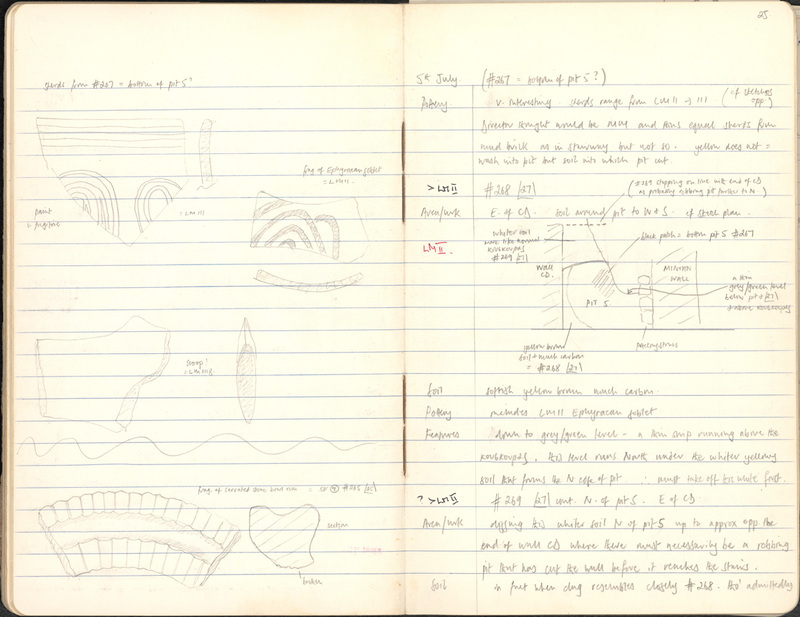 sherds from #267 = bottom of pit 5?
frag of Ephyraean goblet
= LM II.
paint
= LM III
= LM III B.
frag of serrated stone bowl rim = SF #265 [25]
section
broken
25
5th July (#267 = bottom of pit 5?)
Pottery V. interesting. Sherds range from LM II → III. (cf sketches opp.)
Director thought would be and thus equal sherds from
mud brick as in stairway but not so. yellow does not =
wash into pit but soil into which pit cut.
> LM II #268 [27] (#269 stopping on line with end of CD
as probably robbing pit further to N.)
Area/wk E. of CD. Soil around pit to W + S. cf sketch plan.
LM II.
whiter soil
more like normal
kouskouras
#269 [27]
black patch = bottom pit 5 #267
WALL
CD.
PIT 5
MINOAN
WALL
grey/green level
below pit + [27]
+ above kouskouras
yellow brown
soil + much carbon
= #268 [27]
Soil softish yellow brown much carbon.
Pottery includes LM II Ephyraean goblet
Features down to grey/green level - a thin strip running above the
kouskouras. this level runs North under the whiter yellowy
soil that forms the N edge of pit ∴ must take off this white first.
? > LM II #269 [27] cont. N. of pit 5. E of CD
Area/wk digging this whiter soil N of pit 5 up to approx opp. the
end of wall CD where there must necessarily be a robbing
pit that has cut the wall before it reaches the stairs.
Soil in fact when dug resembles closely #268. tho' admittedly